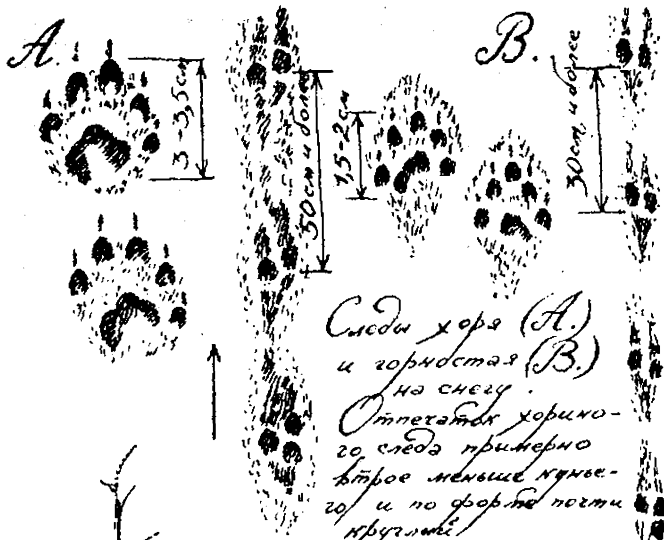 А.
В.
3-3,5см
50см и более
1,5-2см
30см, и более
Следы хоря (А.)
и горностая (В.)
на снегу.
Отпечаток хорино-
го следа примерно
втрое меньше кунье-
го и по форме почти
круглый